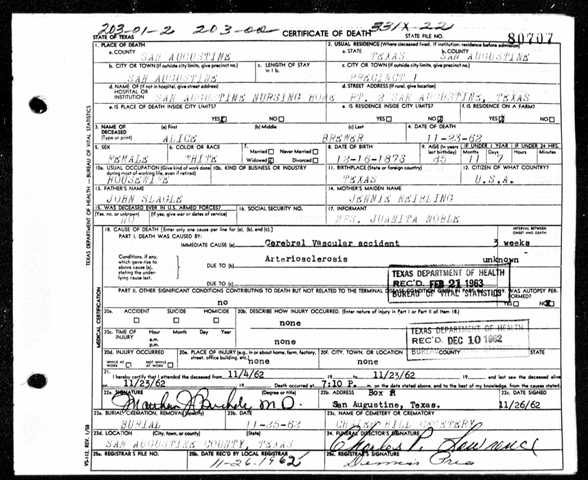 203-01-2 203-00 331X-22
STATE OF TEXAS CERTIFICATE OF DEATH STATE FILE NO. 80707
1. PLACE OF DEATH 2. USUAL RESIDENCE (Where deceased lived. If institution: residence before admission)
a. COUNTY SAN AUGUSTINE a. STATE TEXAS b. COUNTY SAN AUGUSTINE
b. CITY OR TOWN (If outside city limits, give precinct no.) c. LENGTH OF STAY in 1 b. c. CITY OR TOWN (If outside city limits, give precinct no.)
SAN AUGUSTINE PRECINCT 1
d. NAME OF (If not in hospital, give street address) HOSPITAL OR INSTITUTION SAN AUGUSTINE NURSING HOME d. STREET ADDRESS (If rural, give location) RT. 2 SAN AUGUSTINE, TEXAS
e. IS PLACE OF DEATH INSIDE CITY LIMITS? e. IS RESIDENCE INSIDE CITY LIMITS? f. IS RESIDENCE ON A FARM?
YES NO YES NO YES NO
3. NAME OF DECEASED (Type or print) (a) First (b) Middle (c) Last 4. DATE OF DEATH
ALICE BREWER 11-23-62
5. SEX 6. COLOR OR RACE 7. Married Never Married 8. DATE OF BIRTH 9. AGE (In years last birthday) IF UNDER 1 YEAR IF UNDER 24 HRS.
FEMALE Widowed Divorced 12-16-1873 Months Days Hours Min.
11 7
10a. USUAL OCCUPATION (Give kind of work done during most of working life, even if retired) 10b. KIND OF BUSINESS OR INDUSTRY 11. BIRTHPLACE (State or foreign country) 12. CITIZEN OF WHAT COUNTRY?
HOUSEWIFE TEXAS U.S.A.
13. FATHER'S NAME 14. MOTHER'S MAIDEN NAME
JOHN SLAGLE JENNIE
15. WAS DECEASED EVER IN U.S. ARMED FORCES? 16. SOCIAL SECURITY NO. 17. INFORMANT
(Yes, no, or unknown) (If yes, give war or dates of service)
NO MRS. JUANITA NOBLE
18. CAUSE OF DEATH [Enter only one cause per line for (a), (b), and (c).] INTERVAL BETWEEN ONSET AND DEATH
PART I. DEATH WAS CAUSED BY:
IMMEDIATE CAUSE (a) Cerebral Vascular accident 3 weeks
Conditions, if any, which gave rise to above cause (a), stating the underlying cause last. DUE TO (b) Arteriosclerosis unknown
DUE TO (c)
TEXAS DEPARTMENT OF HEALTH
REC'D. FEB 21 1963
BUREAU OF VITAL STATISTICS
PART II. OTHER SIGNIFICANT CONDITIONS CONTRIBUTING TO DEATH BUT NOT RELATED TO THE TERMINAL DISEASE CONDITION GIVEN IN PART I(a) 19. WAS AUTOPSY PERFORMED?
no YES NO
20a. ACCIDENT SUICIDE HOMICIDE 20b. DESCRIBE HOW INJURY OCCURRED. (Enter nature of injury in Part I or Part II of Item 18.)
none
20c. TIME OF INJURY Hour Month Day Year
a.m.
p.m. none
TEXAS DEPARTMENT OF HEALTH
REC'D. DEC 10 1962
BUREAU
20d. INJURY OCCURRED 20e. PLACE OF INJURY (e.g. in or about home, farm, factory, street, office building, etc.) 20f. CITY, TOWN, OR LOCATION COUNTY
WHILE AT WORK NOT WHILE AT WORK none none
21. I hereby certify that I attended the deceased from 11/4/62 to 11/23/62 and last saw the deceased alive
on 11/23/62 Death occurred at 7:10 P.m. on the date stated above, and to the best of my knowledge, from the causes stated.
22a. SIGNATURE (Degree or title) 22b. ADDRESS Box R 22c. DATE SIGNED
M.D. San Augustine, Texas. 11/26/62
23a. BURIAL, CREMATION, REMOVAL 23b. DATE 23c. NAME OF CEMETERY OR CREMATORY
BURIAL 11-25-62 HILL CEMETERY
23d. LOCATION (City, town, or county) (State) 24. FUNERAL DIRECTOR'S SIGNATURE
SAN AUGUSTINE COUNTY, TEXAS Charles P. Lawrence
25a. REGISTRAR'S FILE NO. 25b. DATE REC'D BY LOCAL REGISTRAR 25c. REGISTRAR'S SIGNATURE
11-26-1962
TEXAS DEPARTMENT OF HEALTH - BUREAU OF VITAL STATISTICS
MEDICAL CERTIFICATION